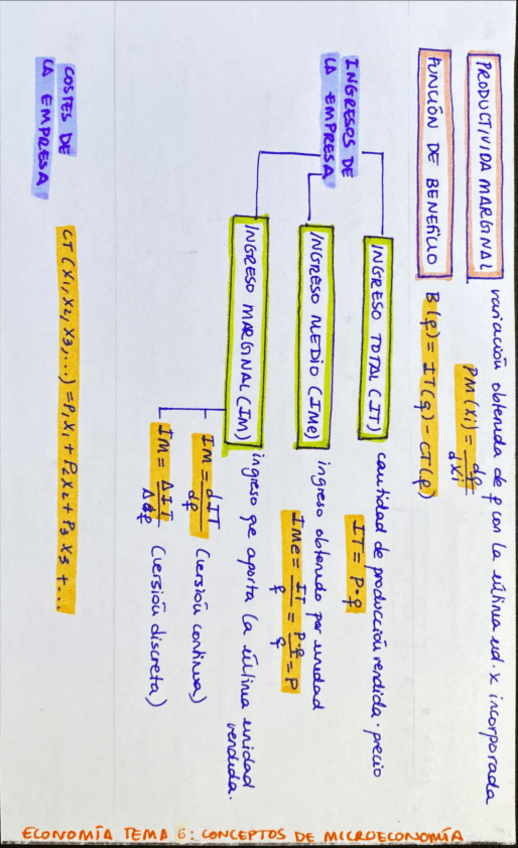 PRODUCTIVIDA MARGINAL variación obtenida de q con la última ud. x incorporada
PM (xi) = dq/dxi
FUNCIÓN DE BENEFICIO B(q) = IT(q) - CT(q)
INGRESOS DE
LA EMPRESA
INGRESO TOTAL (IT) cantidad de producción vendida · precio
IT = P · q
INGRESO MEDIO (IMe) ingreso obtenido por unidad
IMe = IT/q = P·q/q = P
INGRESO MARGINAL (IM) ingreso qe aporta la última unidad
vendida.
IM = dIT/dq (versión continua)
IM = ΔIT/Δq (versión discreta)
COSTES DE
LA EMPRESA
CT (x1, x2, x3, ...) = P1 x1 + P2 x2 + P3 x3 + ...
ECONOMÍA TEMA 6: CONCEPTOS DE MICROECONOMÍA